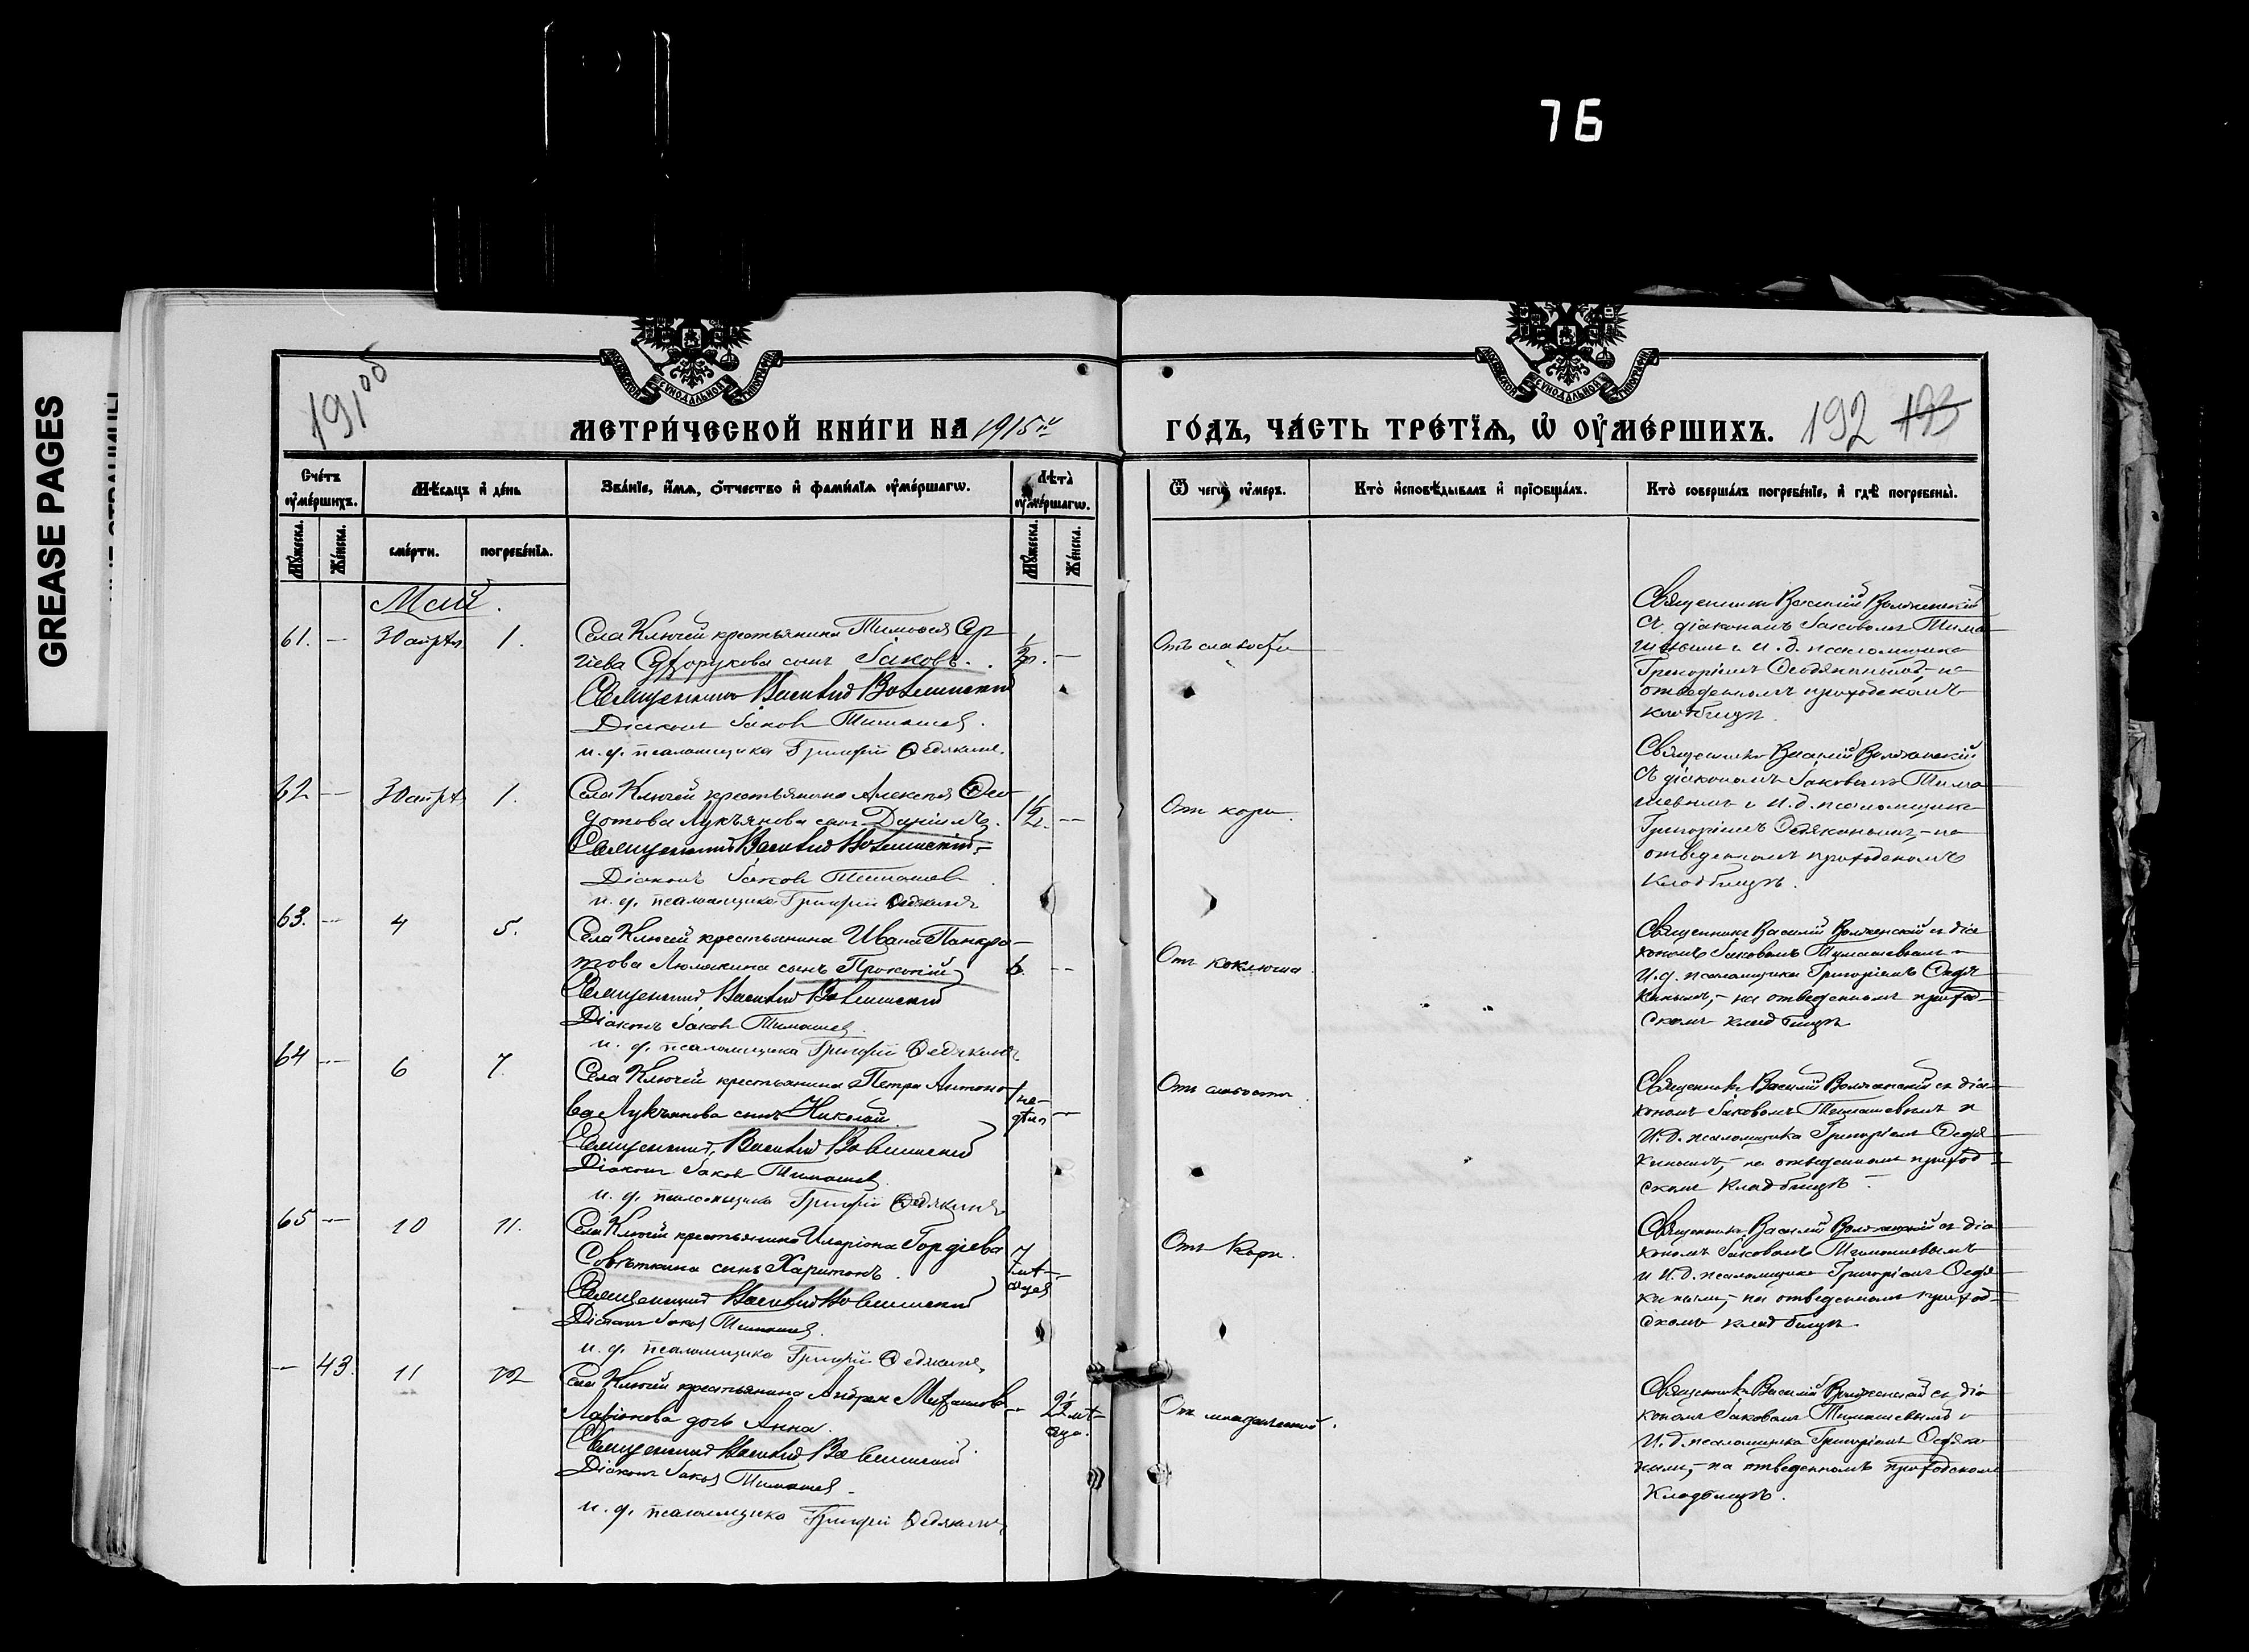 76
GREASE PAGES
191 об
МЕТРИ́ЧЕСКОЙ КНИ́ГИ НА 1915й
ГО́ДЪ, ЧА́СТЬ ТРЕ́ТЇѦ, Ѡ҆ ОУ҆МЕ́РШИХЪ.
192 193
Сче́тъ оу҆ме́ршихъ.
Мѣ́сѧцъ и҆ де́нь
Зва́нїе, и҆́мѧ, ѻ҆́тчество и҆ фами́лїѧ оу҆ме́ршагѡ.
Лѣ́та̀ оу҆ме́ршагѡ.
Ѿ чегѡ̀ оу҆́меръ.
Кто̀ и҆сповѣ́дывалъ и҆ прїѻбща́лъ.
Кто̀ соверша́лъ погребе́нїе, и҆ гдѣ̀ погребены̀.
Мꙋ́жеска.
Же́нска.
сме́рти.
погребе́нїѧ.
Мꙋ́жеска.
Же́нска.
Май.
61. — 30 апрѣл 1.
Села Ключей крестьянина Тимоѳея Сер
гіева сынъ Іаковъ.
Священникъ Василій
Діаконъ Іаковъ Тимашев.
и. д. псаломщика Григорій Ѳедякинъ.
Отъ слабости
Священникъ Василій
съ діакономъ Іаковомъ Тима
шевымъ и И. д. псаломщика
Григоріемъ Ѳедякинымъ, – на
отведенномъ приходскомъ
кладбищѣ.
62 — 30 апрѣ 1.
Села Ключей крестьянина Алексѣя Ѳео
дотова Лукъянова сынъ Даніилъ.
1½. —
Священникъ Василій
Діаконъ Іаков Тимашев
и. д. псаломщика Григорій Ѳедякинъ
Отъ кори.
Священникъ Василій
съ діакономъ Іаковомъ Тима
шевымъ и И. д. псаломщика
Григоріемъ Ѳедякинымъ, – на
отведенномъ приходскомъ
кладбищѣ.
63. — 4 5.
Села Ключей крестьянина Ивана Панкра-
това Люмякина сынъ Прокопій
6. —
Священникъ Василій
Діаконъ Іаков Тимашев.
и. д. псаломщика Григорій Ѳедякинъ
Отъ коклюша
Священникъ Василій съ діа
кономъ Іаковомъ Тимашевымъ и
И. д. псаломщика Григоріемъ Ѳедя
кинымъ, – на отведенномъ приход-
скомъ кладбищѣ
64 — 6 7.
Села Ключей крестьянина Петра Антоно
ва Лукъянова сынъ Николай.
1 не-
дѣл —
Священникъ Василій
Діаконъ Іаков Тимашев.
и. д. псаломщика Григорій Ѳедякинъ
Отъ слабости
Священникъ Василій съ діа-
кономъ Іаковомъ Тимашевымъ и
И. д. псаломщика Григоріемъ Ѳедя
кинымъ, – на отведенномъ приход-
скомъ кладбищѣ –
65 — 10 11.
Села Ключей крестьянина Иларіона Гордіева
Совѣткина сынъ Харитонъ.
7
мѣ-
сяцев
Священникъ Василій
Діаконъ Іаков Тимашев.
и. д. псаломщика Григорій Ѳедякинъ
Отъ Кори.
Священникъ Василій съ діа
кономъ Іаковомъ Тимашевымъ
и И. д. псаломщика Григоріемъ Ѳедя
кинымъ, – на отведенномъ приход-
скомъ кладбищѣ.
— 43. 11 12
Села Ключей крестьянина Андрея Михаилова
Ларіонова дочь Анна.
— 2½ мѣ-
сяца.
Священникъ Василій
Діаконъ Іаков Тимашев.
и. д. псаломщика Григорій Ѳедякинъ
Отъ младенческой.
Священникъ Василій съ діа
кономъ Іаковомъ Тимашевымъ и
И. д. псаломщика Григоріемъ Ѳедяки
нымъ, – на отведенномъ приходскомъ
кладбищѣ.